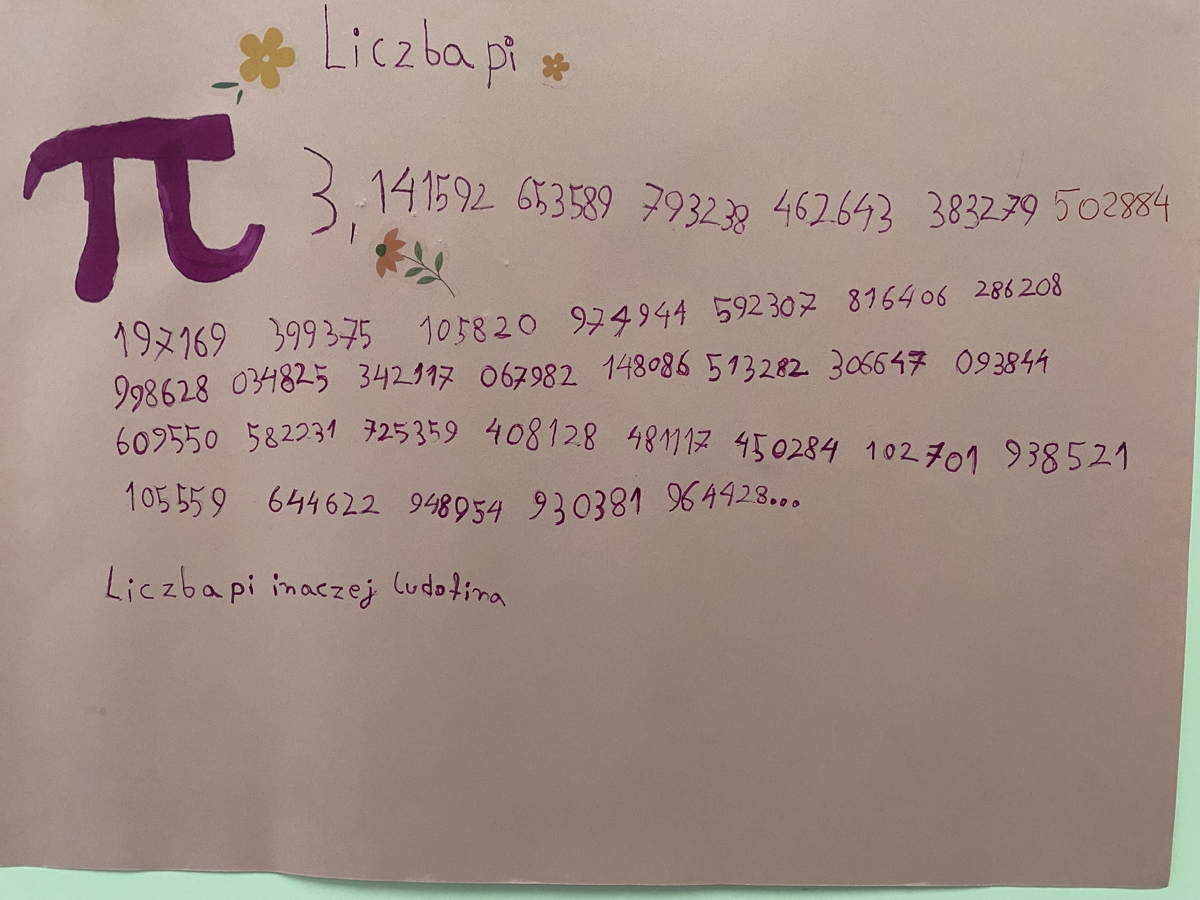 Liczba pi
π 3,141592 653589 793238 462643 383279 502884
197169 399375 105820 974944 592307 816406 286208
998628 034825 342117 067982 148086 513282 306647 093844
609550 582231 725359 408128 481117 450284 102701 938521
105559 644622 948954 930381 964428...
Liczba pi inaczej ludofina